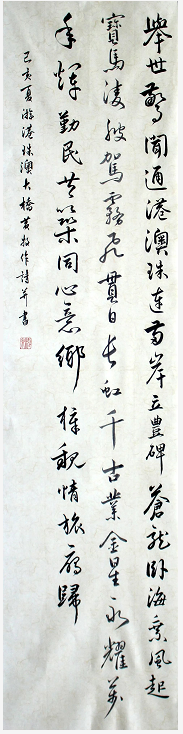 舉世驚聞通港澳珠連两岸立豊碑蒼龍卧海乘風起
寶馬凌波駕霧飛貫日長虹千古業金星永耀萬
年輝勤民共築同心意鄉梓親情旅雁歸
己亥夏游港珠澳大橋作詩并書